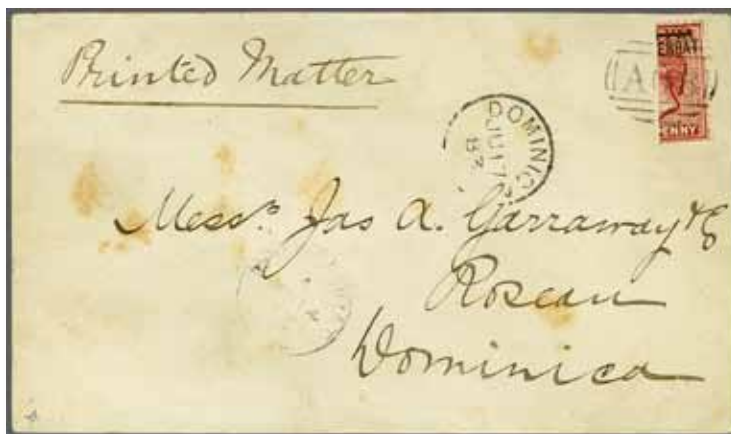 Printed Matter
ERRAT
A
ENNY
DOMINIC
JU 17
Mess.rs Jas A. Garraway &
Roseau
Dominica